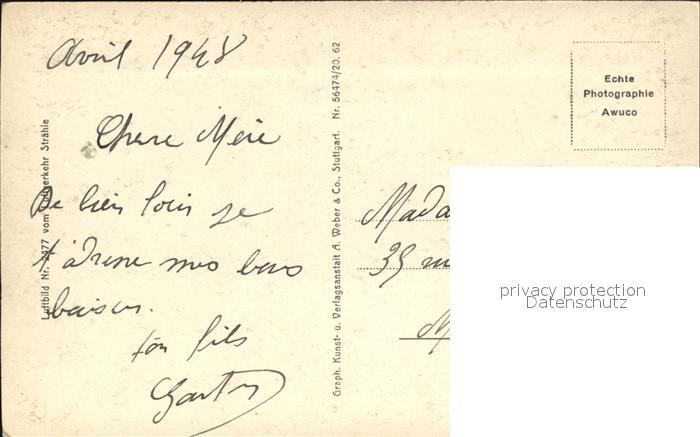 Avril 1948
Chere Mère
De bien loin je
t'adresse mes bons
baisers.
ton fils
Luftbild Nr. 2477 vom Luftverkehr Strähle
Graph. Kunst- u. Verlagsanstalt A. Weber & Co., Stuttgart. Nr. 56474/20. 62
Echte
Photographie
Awuco
Mada
35
privacy protection
Datenschutz